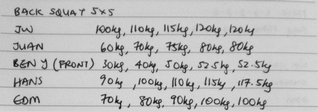 BACK SQUAT 5x5
JW 100kg, 110kg, 115kg, 120kg, 120kg
JUAN 60kg, 70kg, 75kg, 80kg, 80kg
BEN Y (FRONT) 30kg, 40kg, 50kg, 52.5kg, 52.5kg
HANS 90kg, 100kg, 110kg, 115kg, 117.5kg
EDM 70kg, 80kg, 90kg, 100kg, 100kg